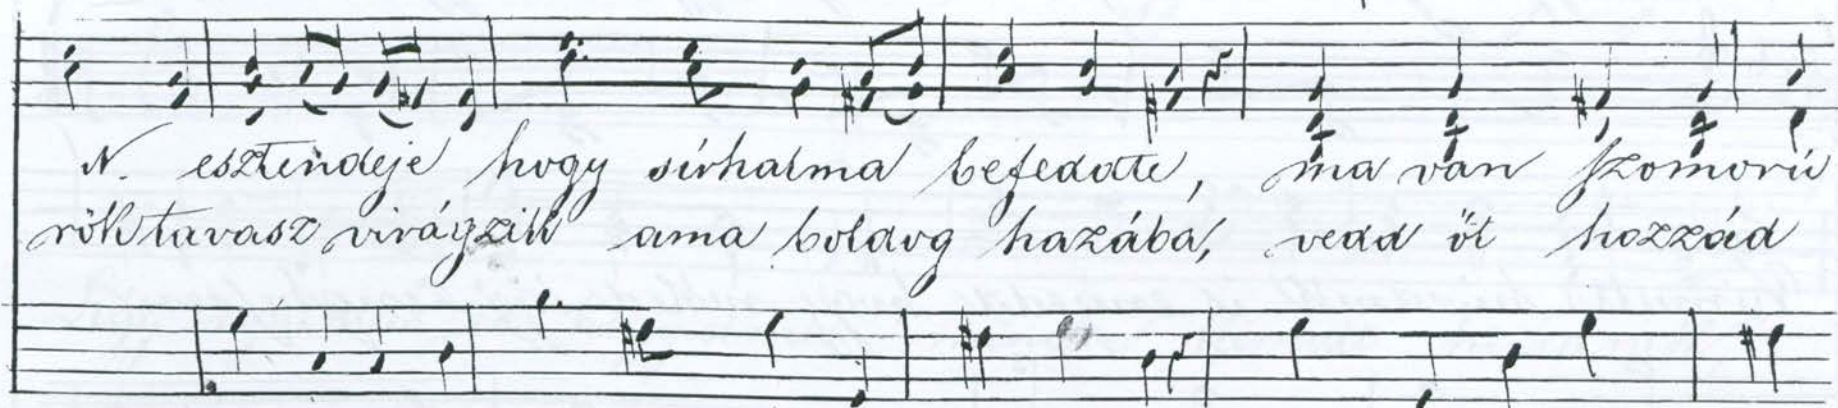 N. esztendeje hogy sírhalma befedte, ma van szomorú
röktavasz virágzik ama boldog hazába, vedd őt hozzád